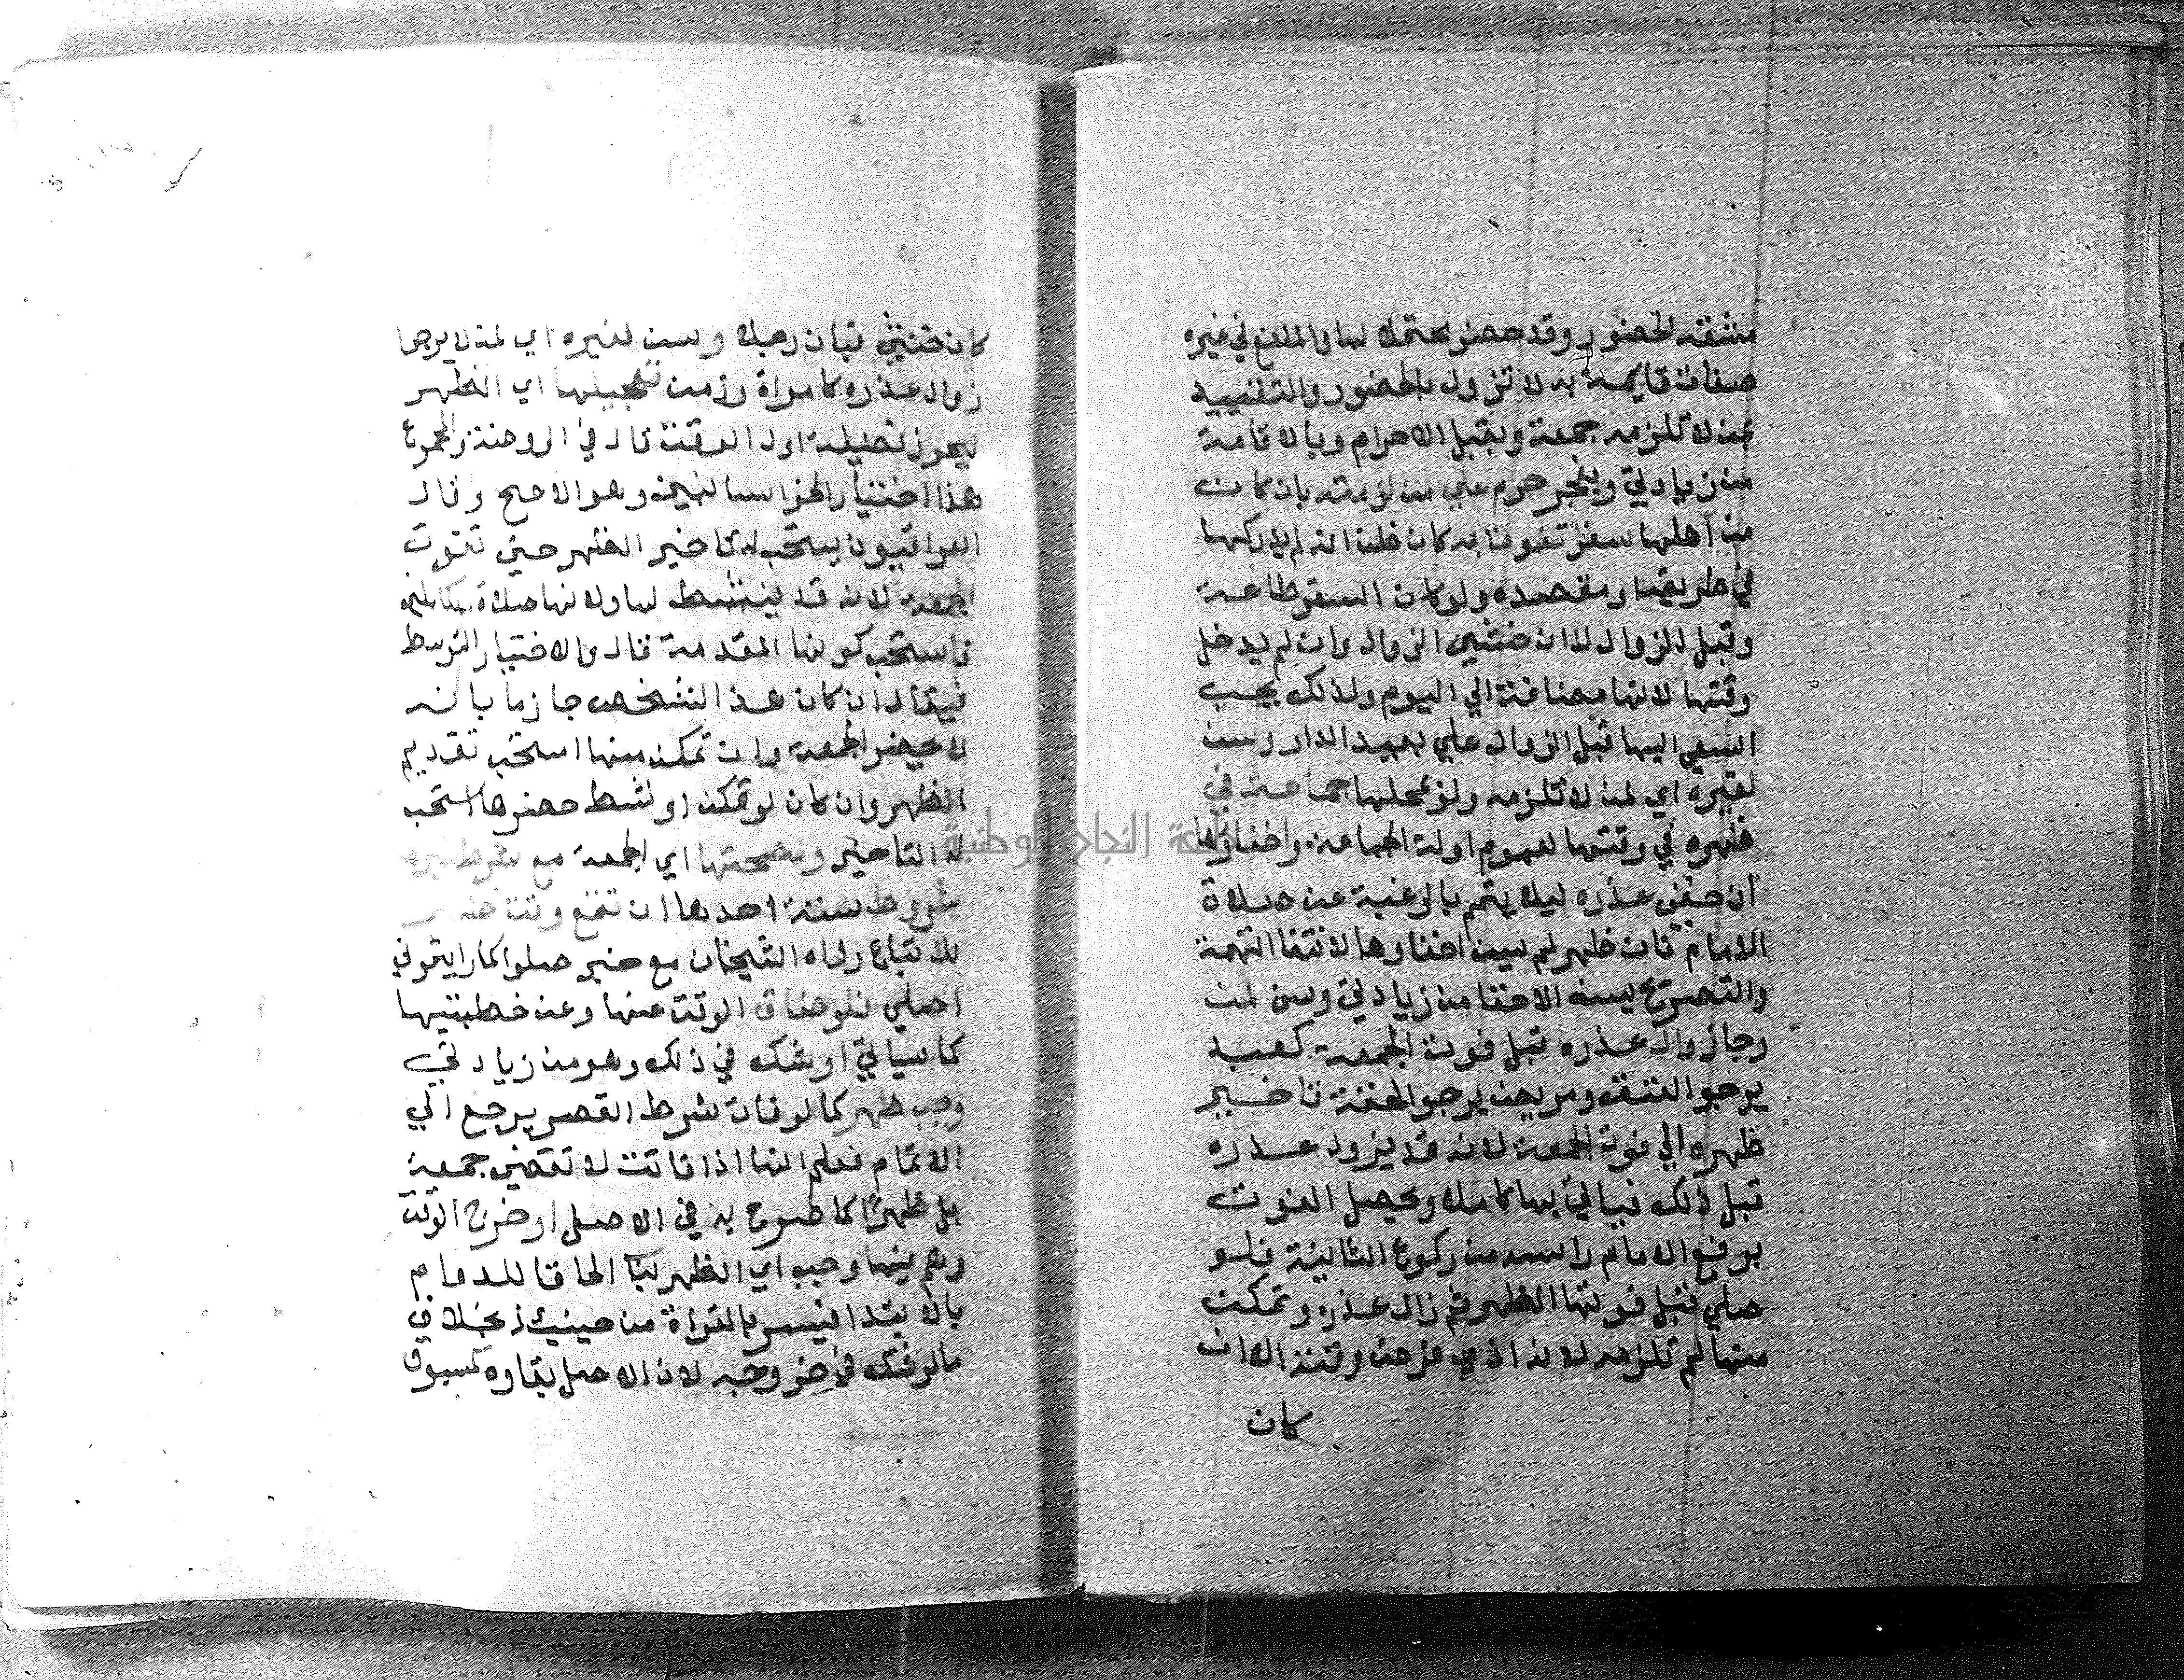 مشقة الحضور وقد حضر بحتمل لها والمانع في غيره
صفات قايمة به لا تزول بالحضور والتقييد
بمن لا تلزمه جمعة وبقبل الاحرام وبالاقامة
من زيادتي وبفجر حرم علي من لزمته بان كان
من اهلها سفر تفوت به كان ظن انه لم يدركها
في طريقه او مقصده ولو كان السفر طاعة
وقبل الزوال الا ان خشي الزوال وان لم يدخل
وقتها لانها مضافة الي اليوم ولذلك يجب
السعي اليها قبل الزوال علي بعيد الدار وسن
لغيره اي لمن لا تلزمه ولو بمحلها جماعة في
ظهره في وقتها لعموم ادلة الجماعة واخفاوها
ان خفي عذره ليلا يتهم بالرغبة عن صلاة
الامام فان ظهر لم يسن اخفاوها لانتفا التهمة
والتصريح بسنه الاخفا من زيادتي وسن لمن
رجا زوال عذره قبل فوت الجمعة كعبد
يرجو العتق ومريض يرجو الخفة تاخير
ظهره الي فوت الجمعة لانه قد يزول عذره
قبل ذلك فياتي بها كاملا ويحصل الفوت
برفع الامام راسه من ركوع الثانية فلو
صلي قبل فوتها الظهر ثم زال عذره وتمكن
منها لم تلزمه لانه ادي فرض وقته الا ان
كان
كان خنثي فبان رجلا وسن لغيره اي لمن لا يرجوا
زوال عذره كامراة وزمن تعجيلها اي الظهر
ليحوز فضيلة اول الوقت قال في الروضة والمجموع
هذا اختيار الخراسانيين وهو الاصح وقال
العراقيون يستحب له تاخير الظهر حتي تفوت
الجمعة لانه قد ينشط لها ولانها صلاة الكاملين
فاستحب كونها المقدمة قال والاختيار التوسط
فيقال ان كان هذا الشخص جازما بانه
لا يحضر الجمعة وان تمكن منها استحب تقديم
الظهر وان كان لو تمكن او نشط حضرها استحب
له التاخير ولصحتها اي الجمعة مع شرط غيرها
شروط ستة احدها ان تقع وقت ظهر
للاتباع رواه الشيخان مع خبر صلوا كما رايتموني
اصلي فلو ضاق الوقت عنها وعن خطبتيها
كما سياتي او شك في ذلك وهو من زيادتي
وجب ظهر كما لو فات شرط القصر يرجع الي
الاتمام فعلم انها اذا فاتت لا تقضي جمعة
بل ظهرًا كما صرح به في الاصل او خرج الوقت
وهم فيها وجب اي الظهر بنا الحاقا للدوام
بالابتدا فيسر بالقراة من حينيذ بخلاف
ما لو شك في خروجه لان الاصل بقاوه كمسبوق
جامعة النجاح الوطنية